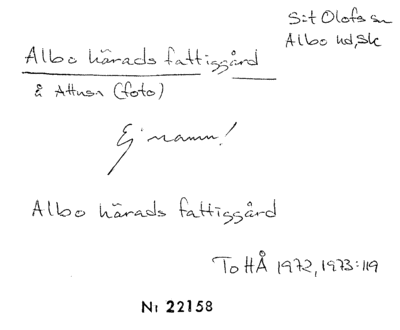 S:t Olofs sn
Albo hd, Sk
Albo härads fattiggård
å Attusa (foto)
Ej namn!
Albo härads fattiggård
ToHÅ 1972, 1973:119
Nr 22158